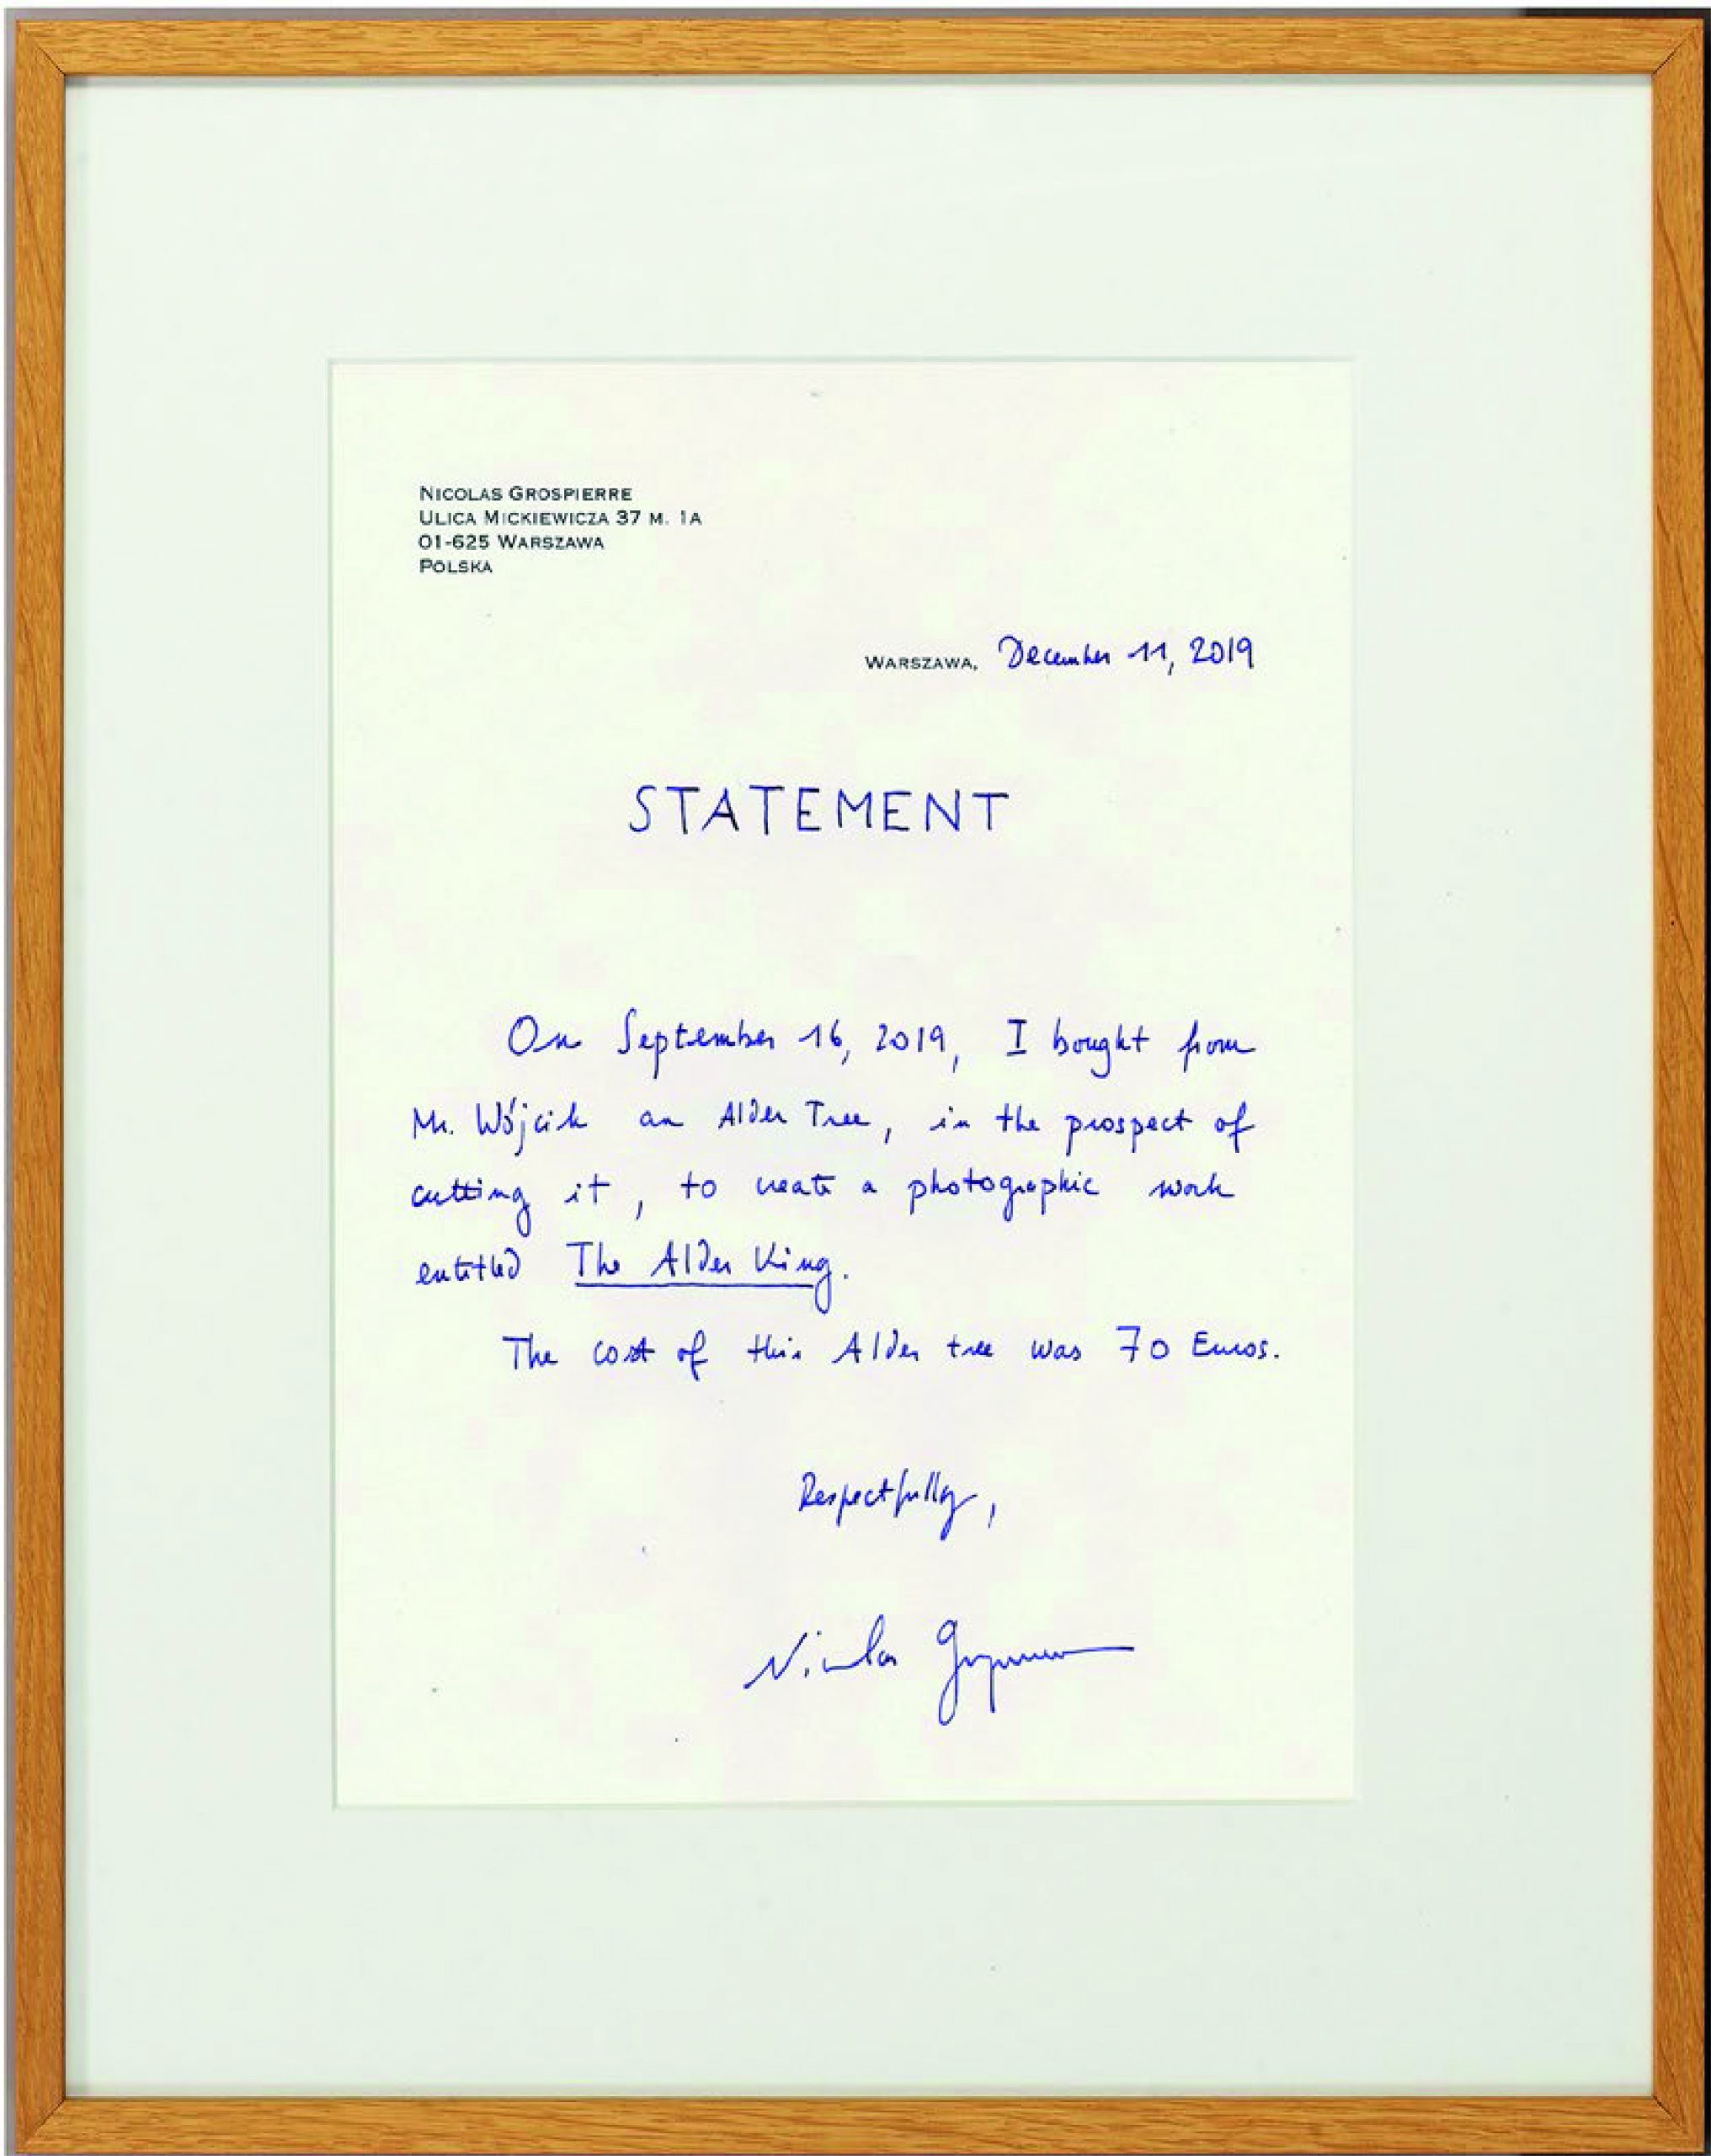 NICOLAS GROSPIERRE
ULICA MICKIEWICZA 37 M. 1A
01-625 WARSZAWA
POLSKA
WARSZAWA, December 11, 2019
STATEMENT
On September 16, 2019, I bought from
Mr. Wójcik an Alder Tree, in the prospect of
cutting it, to create a photographic work
entitled The Alder King.
The cost of this Alder tree was 70 Euros.
Respectfully,
Nicolas Grospierre